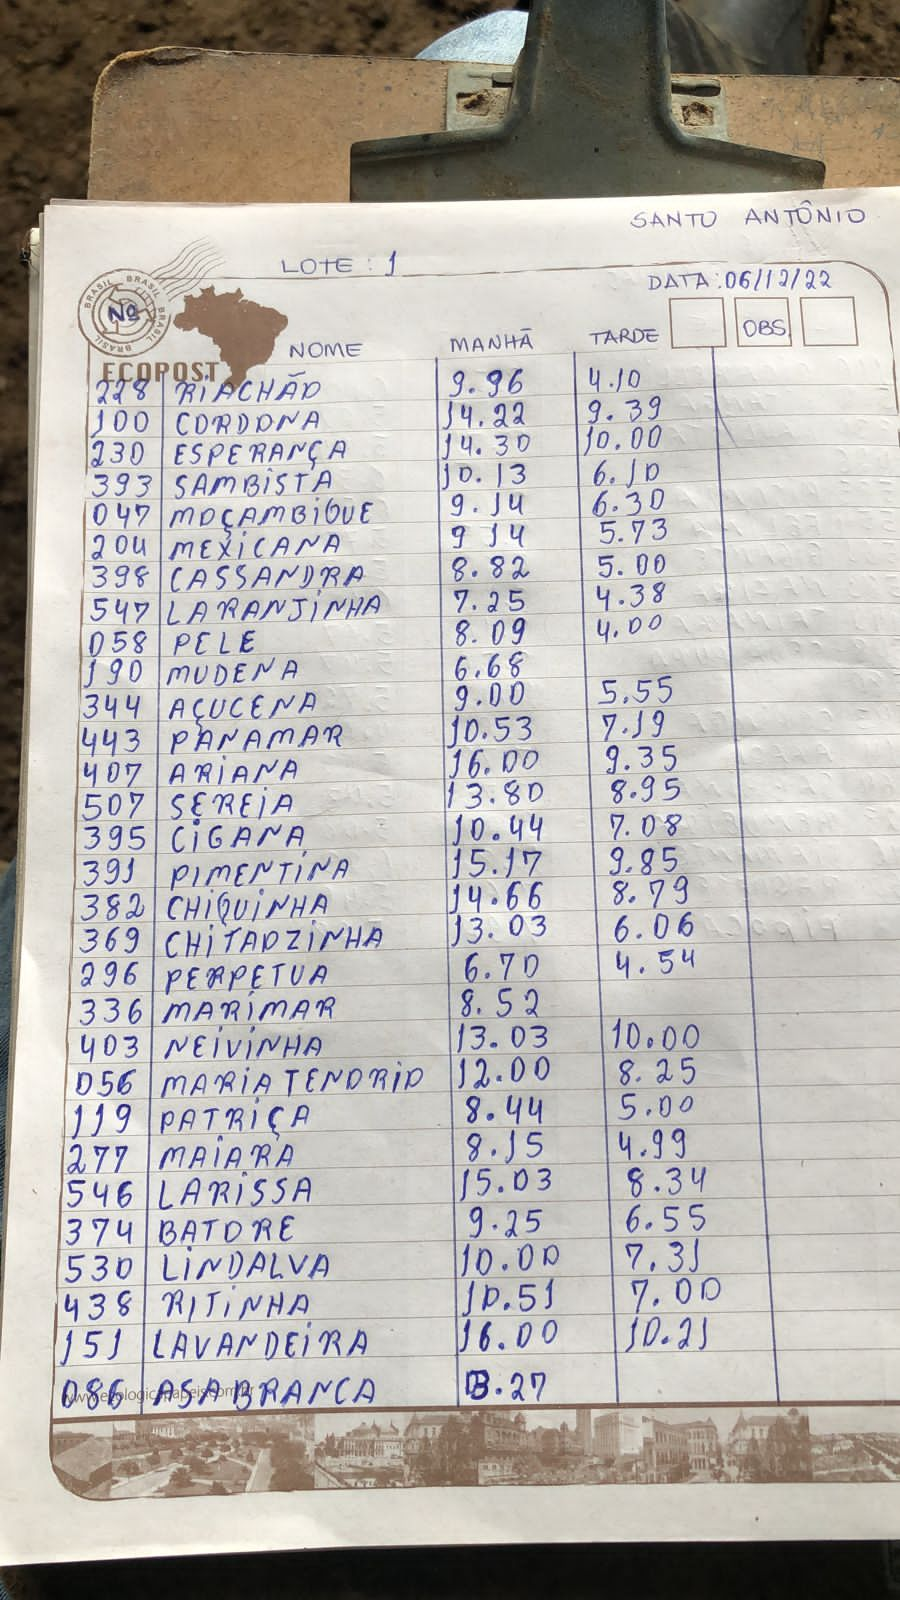 SANTO ANTÔNIO
LOTE : 1
DATA : 06/12/22
BRASIL BRASIL BRASIL BRASIL
ECOPOST
Nº NOME MANHÃ TARDE OBS
228 RIACHÃO 9.96 4.10
100 CORDONA 14.22 9.39
230 ESPERANÇA 14.30 10.00
393 SAMBISTA 10.13 6.10
047 MOÇAMBIQUE 9.14 6.30
204 MEXICANA 9 14 5.73
398 CASSANDRA 8.82 5.00
547 LARANJINHA 7.25 4.38
058 PELE 8.09 4.00
190 MUDENA 6.68
344 AÇUCENA 9.00 5.55
443 PANAMAR 10.53 7.19
407 ARIANA 16.00 9.35
507 SEREIA 13.80 8.95
395 CIGANA 10.44 7.08
391 PIMENTINA 15.17 9.85
382 CHIQUINHA 14.66 8.79
369 CHITADZINHA 13.03 6.06
296 PERPETUA 6.70 4.54
336 MARIMAR 8.52
403 NEIVINHA 13.03 10.00
056 MARIA TENDRID 12.00 8.25
119 PATRIÇA 8.44 5.00
277 MAIARA 8.15 4.99
546 LARISSA 15.03 8.34
374 BATORE 9.25 6.55
530 LINDALVA 10.00 7.31
438 RITINHA 10.51 7.00
151 LAVANDEIRA 16.00 10.21
086 ASABRANCA .27